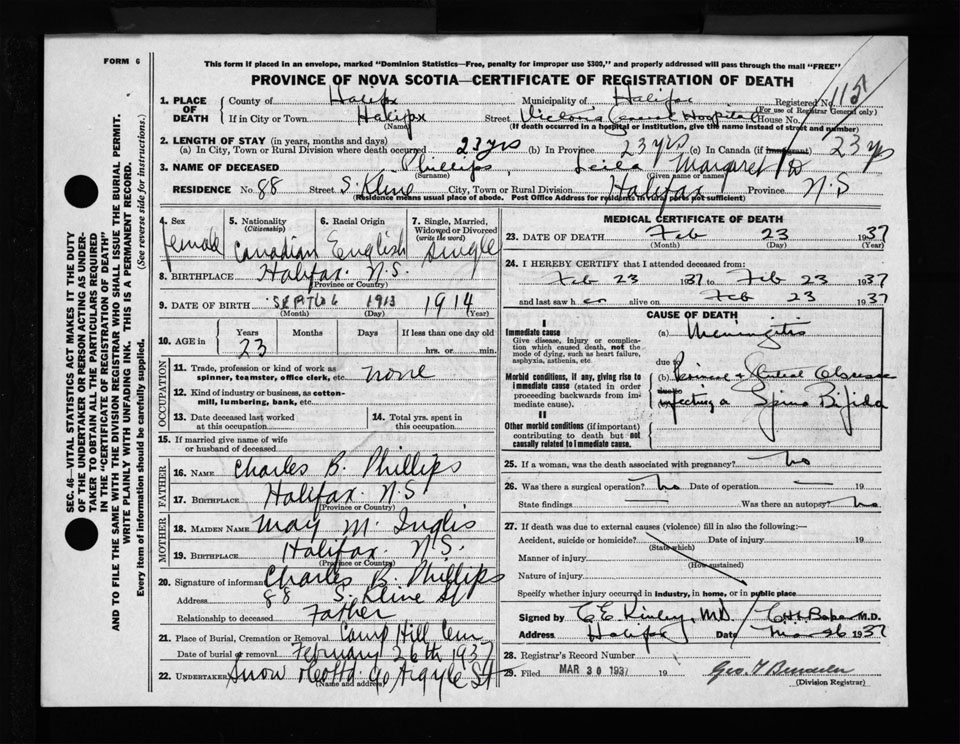 FORM 6
This form if placed in an envelope, marked "Dominion Statistics—Free, penalty for improper use $300," and properly addressed will pass through the mail "FREE"
PROVINCE OF NOVA SCOTIA—CERTIFICATE OF REGISTRATION OF DEATH
1. PLACE OF DEATH
County of Halifax Municipality of Halifax Registered No. 1157
(For use of Registrar General only)
If in City or Town Halifax Street Victoria General Hospital House No.
(Name) (If death occurred in a hospital or institution, give the name instead of street and number)
2. LENGTH OF STAY (in years, months and days)
(a) In City, Town or Rural Division where death occurred 23 yrs (b) In Province 23 yrs (c) In Canada (if immigrant) 23 yrs
3. NAME OF DECEASED Phillips, Leila Margaret D
(Surname) (Given name or names)
RESIDENCE No. 88 Street S. Kline City, Town or Rural Division Halifax Province N.S
(Residence means usual place of abode. Post Office Address for residents in rural parts not sufficient)
4. Sex female
5. Nationality (Citizenship) Canadian
6. Racial Origin English
7. Single, Married, Widowed or Divorced (write the word) Single
8. BIRTHPLACE Halifax. N.S.
(Province or Country)
9. DATE OF BIRTH SEPT 06 1913 1914
(Month) (Day) (Year)
10. AGE in Years 23 Months Days If less than one day old
hrs. or min.
OCCUPATION
11. Trade, profession or kind of work as spinner, teamster, office clerk, etc. none
12. Kind of industry or business, as cotton-mill, lumbering, bank, etc.
13. Date deceased last worked at this occupation
14. Total yrs. spent in this occupation
15. If married give name of wife or husband of deceased
FATHER
16. NAME Charles B. Phillips
17. BIRTHPLACE Halifax. N.S
(Province or Country)
MOTHER
18. MAIDEN NAME May M. Inglis
19. BIRTHPLACE Halifax. N.S.
(Province or Country)
20. Signature of informant Charles B. Phillips
Address 88 S. Kline St
Relationship to deceased Father
21. Place of Burial, Cremation or Removal Camp Hill Cem
Date of burial or removal February 26th 1937
22. UNDERTAKER Snow & Co Ltd. 90 Argyle St
(Name and address)
MEDICAL CERTIFICATE OF DEATH
23. DATE OF DEATH Feb 23 1937
(Month) (Day) (Year)
24. I HEREBY CERTIFY that I attended deceased from:
Feb 23 1937 to Feb 23 1937
and last saw h er alive on Feb 23 1937
CAUSE OF DEATH
I
Immediate cause
Give disease, injury or complication which caused death, not the mode of dying, such as heart failure, asphyxia, asthenia, etc.
(a) Meningitis
due to
Morbid conditions, if any, giving rise to immediate cause (stated in order proceeding backwards from immediate cause).
(b) Perineal & Gluteal Abscess
due to
infecting a Spina Bifida
II
Other morbid conditions (if important) contributing to death but not causally related to immediate cause.
25. If a woman, was the death associated with pregnancy? no
26. Was there a surgical operation? no Date of operation — 19
State findings — Was there an autopsy? no
27. If death was due to external causes (violence) fill in also the following:—
Accident, suicide or homicide? Date of injury 19
(State which)
Manner of injury
(How sustained)
Nature of injury
Specify whether injury occurred in industry, in home, or in public place
Signed by C E Kinley, M.D. M.D.
Address Halifax Date Mar 26 1937
28. Registrar's Record Number
29. Filed MAR 30 1937 19
(Division Registrar)
SEC. 46—VITAL STATISTICS ACT MAKES IT THE DUTY
OF THE UNDERTAKER OR PERSON ACTING AS UNDER-
TAKER TO OBTAIN ALL THE PARTICULARS REQUIRED
IN THE "CERTIFICATE OF REGISTRATION OF DEATH"
AND TO FILE THE SAME WITH THE DIVISION REGISTRAR WHO SHALL ISSUE THE BURIAL PERMIT.
WRITE PLAINLY WITH UNFADING INK. THIS IS A PERMANENT RECORD.
Every item of information should be carefully supplied. (See reverse side for instructions.)